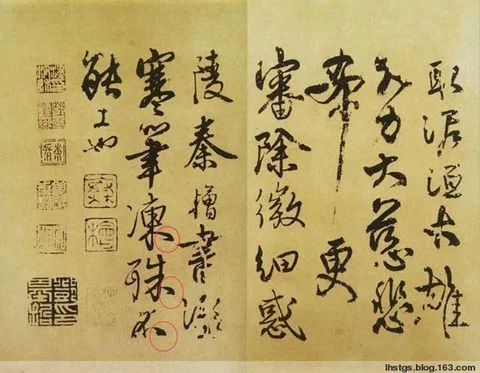 取泥洹大雄
大力大慈悲
希更
審除微細惑
陵秦書
寒筆凍殊不
能工也
lhstgs.blog.163.com